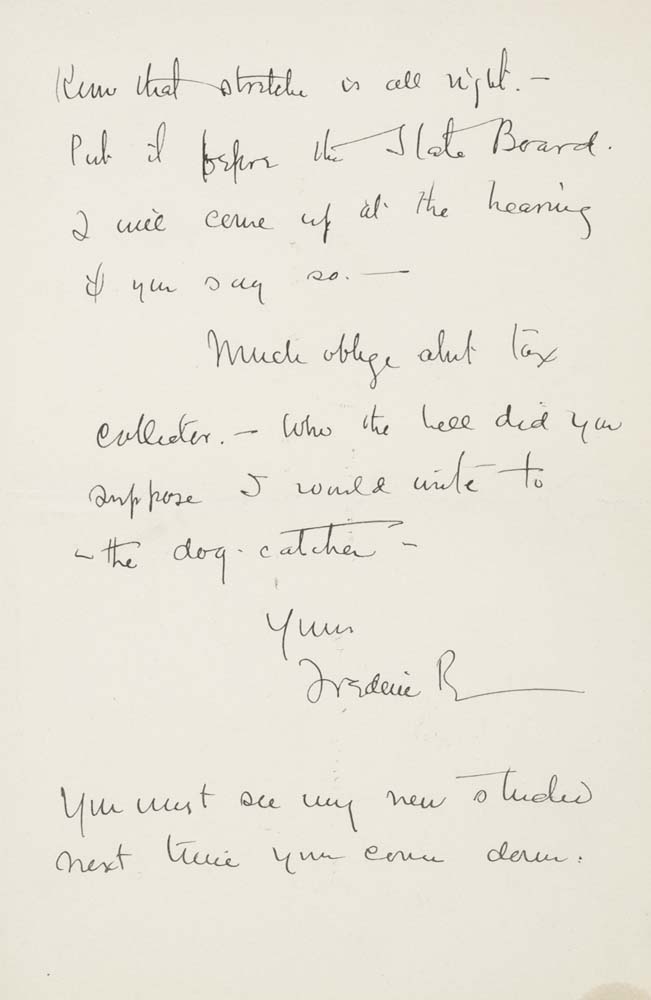 that stretch is all right. –
Put it before the State Board.
I will come up at the hearing
if you say so. —
Much oblige abut tax
collector. – Who the hell did you
suppose I would write to
– the dog-catcher –
Yours
Frederic R
You must see my new studio
next time you come down.